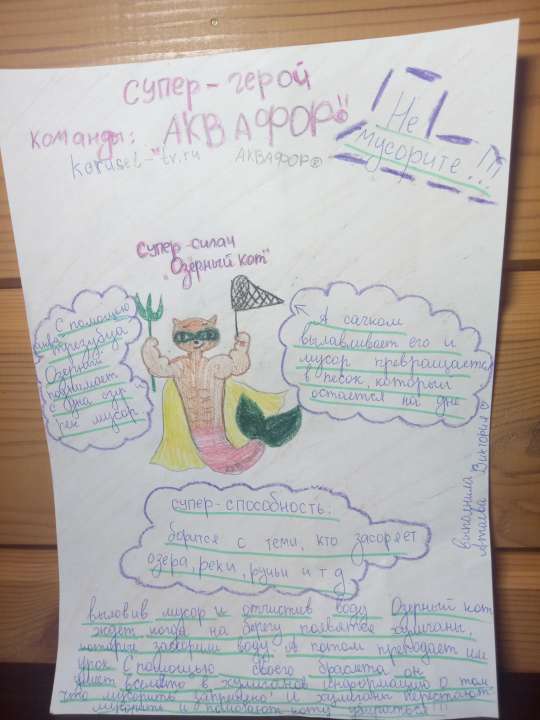 супер-герой
команды: АКВАФОР!!
karusel-tv.ru АКВАФОР®
Не
мусорите...!!!
супер-силач
"Озерный кот"
С помощью
трезубца
Озерный
поднимает
с дна озер
рек мусор
А сачком
вылавливает его и
мусор превращается
в песок, который
остаётся на дне
выполнила
Виктория
супер-способность:
борится с теми, кто засоряет
озера, реки, ручьи и т.д
выловив мусор и отчистив воду Озерный кот
ждет когда на берегу появятся хулиганы,
которые засорили воду. А потом преподает им
урок. С помощью своего браслета он
в хулиганов информацию о том
что мусорить запрещено! И хулиганы перестают
мусорить и помогают коту